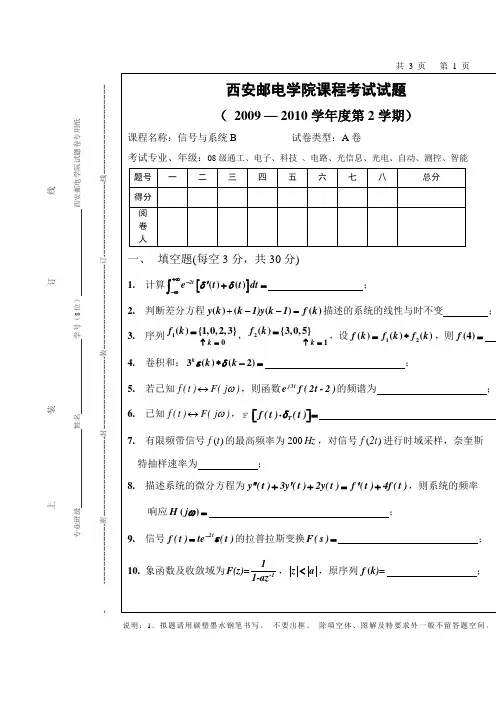 共 3 页 第 1 页
西安邮电学院课程考试试题
（ 2009 — 2010 学年度第 2 学期）
课程名称：信号与系统 B 试卷类型：A 卷
考试专业、年级：08 级通工、电子、科技 、电路、光信息、光电、自动、测控、智能
题号 一 二 三 四 五 六 七 八 总分
得分
阅卷人
一、 填空题(每空 3 分，共 30 分)
1. 计算 ∫_{-∞}^{+∞} e^{-2t} [δ′(t) + δ(t)] dt = ；
2. 判断差分方程 y(k) + (k - 1)y(k - 1) = f(k) 描述的系统的线性与时不变 ；
3. 序列 f₁(k) = {1, 0, 2, 3} ↑k = 0， f₂(k) = {3, 0, 5} ↑k = 1，设 f(k) = f₁(k) * f₂(k)，则 f(4) =
4. 卷积和：3^k ε(k) * δ(k − 2) = ；
5. 若已知 f(t) ↔ F(jω)，则函数 e^{j3t} f(2t - 2) 的频谱为 ；
6. 已知 f(t) ↔ F(jω)，F [f(t)·δ_T(t)] =
7. 有限频带信号 f(t) 的最高频率为 200 Hz，对信号 f(2t) 进行时域采样，奈奎斯
特抽样速率为 ；
8. 描述系统的微分方程为 y″(t) + 3y′(t) + 2y(t) = f′(t) + 4f(t)，则系统的频率
响应 H(jω) = ；
9. 信号 f(t) = te^{-2t} ε(t) 的拉普拉斯变换 F(s) = ；
10. 象函数及收敛域为 F(z) = 1/(1-az^{-1})，|z| < |a|，原序列 f(k) = ；
说明：1、拟题请用碳塑墨水钢笔书写。 不要出框。 除填空体、图解及特要求外一般不留答题空间。
西安邮电学院试题卷专用纸
学号（8 位）
姓名
专业班级
上 装 订 线
密 封 装 订 线